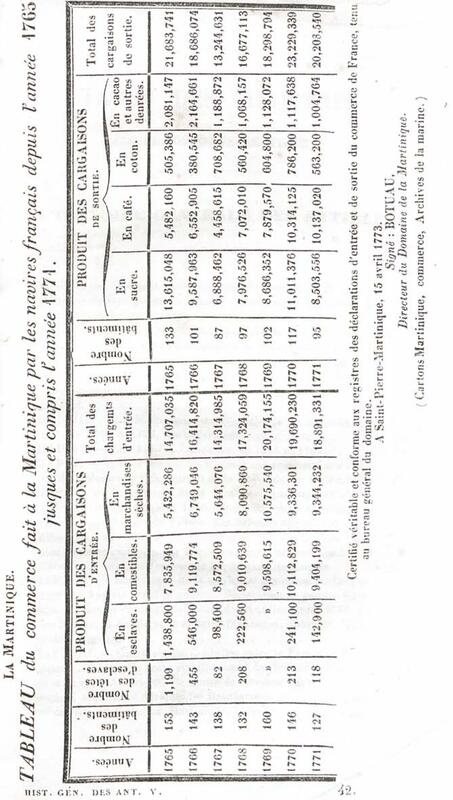 LA MARTINIQUE.
TABLEAU du commerce fait à la Martinique par les navires français depuis l'année 1765
jusques et compris l'année 1771.
Années. Nombre des bâtiments. Nombre des têtes d'esclaves. PRODUIT DES CARGAISONS D'ENTRÉE. En esclaves. En comestibles. En marchandises sèches. Total des chargemts d'entrée. Années. Nombre des bâtiments. PRODUIT DES CARGAISONS DE SORTIE. En sucre. En café. En coton. En cacao et autres denrées. Total des cargaisons de sortie.
1765 153 1,199 1,438,800 7,835,949 5,432,286 14,707,035 1765 133 13,615,048 5,482,160 505,386 2,081,147 21,683,741
1766 143 455 546,000 9,119,774 6,749,046 16,414,820 1766 101 9,587,963 6,552,905 380,545 2,164,661 18,686,074
1767 138 82 98,400 8,572,509 5,644,076 14,314,985 1767 87 6,888,462 4,458,615 708,682 1,188,872 13,244,631
1768 132 208 222,560 9,010,639 8,090,860 17,324,059 1768 97 7,976,526 7,072,010 560,420 1,068,157 16,677,113
1769 160 » » 9,598,615 10,575,540 20,174,155 1769 102 8,686,352 7,879,570 604,800 1,128,072 18,298,794
1770 146 213 241,100 10,112,829 9,336,301 19,690,230 1770 117 11,011,376 10,314,125 786,200 1,117,638 23,229,339
1771 127 118 142,900 9,404,199 9,344,232 18,891,331 1771 95 8,503,556 10,137,020 563,200 1,004,764 20,208,540
Certifié véritable et conforme aux registres des déclarations d'entrée et de sortie du commerce de France, tenu
au bureau général du domaine.
A Saint-Pierre-Martinique, 15 avril 1773.
Signé : BOTUAU,
Directeur du Domaine de la Martinique.
(Cartons Martinique, commerce, Archives de la marine.)
HIST. GÉN. DES ANT. V. 42.